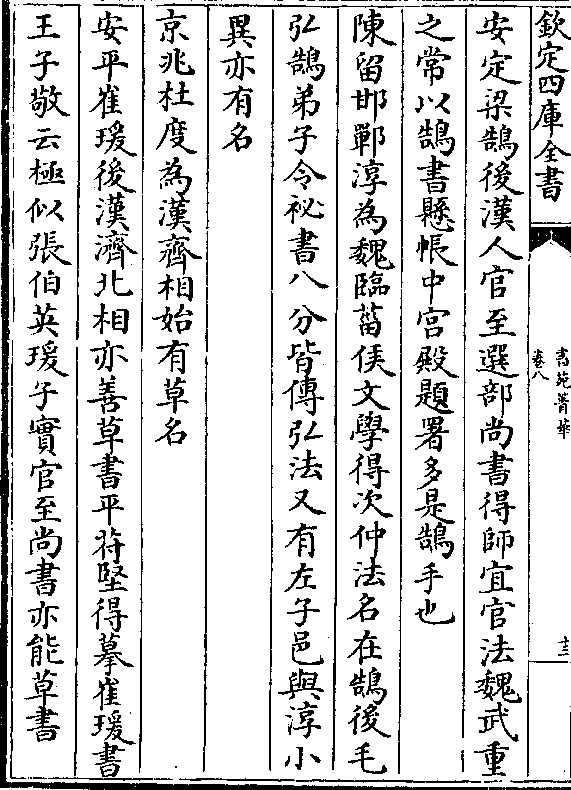 欽定四庫全書
書苑菁華
卷八
十三
安定梁鵠後漢人官至選部尚書得師宜官法魏武重
之常以鵠書懸帳中宮殿題署多是鵠手也
陳留邯鄲淳為魏臨菑侯文學得次仲法名在鵠後毛
弘鵠弟子今祕書八分皆傳弘法又有左子邑與淳小
異亦有名
京兆杜度為漢齊相始有草名
安平崔瑗後漢濟北相亦善草書平苻堅得摹崔瑗書
王子敬云極似張伯英瑗子實官至尚書亦能草書